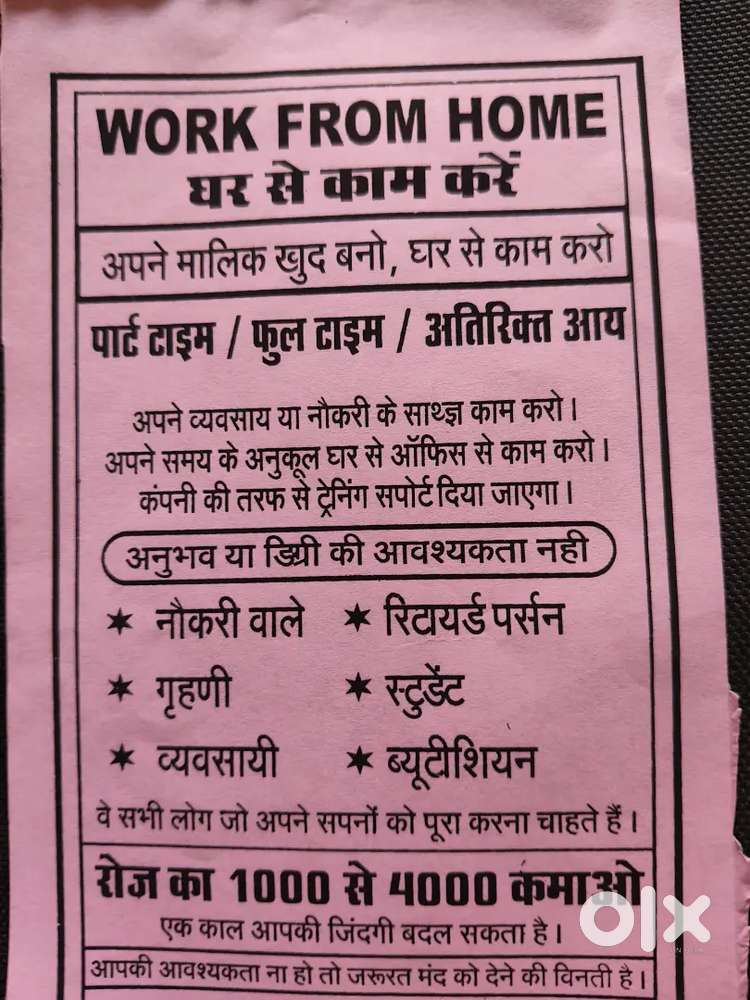 WORK FROM HOME
घर से काम करें
अपने मालिक खुद बनो, घर से काम करो
पार्ट टाइम / फुल टाइम / अतिरिक्त आय
अपने व्यवसाय या नौकरी के साथ्ज्ञ काम करो।
अपने समय के अनुकूल घर से ऑफिस से काम करो।
कंपनी की तरफ से ट्रेनिंग सपोर्ट दिया जाएगा।
अनुभव या डिग्री की आवश्यकता नही
* नौकरी वाले * रिटायर्ड पर्सन
* गृहणी * स्टुडेंट
* व्यवसायी * ब्यूटीशियन
वे सभी लोग जो अपने सपनों को पूरा करना चाहते हैं।
रोज का 1000 से 4000 कमाओ
olx
एक काल आपकी जिंदगी बदल सकता है।
आपकी आवश्यकता ना हो तो जरूरत मंद को देने की विनती है।